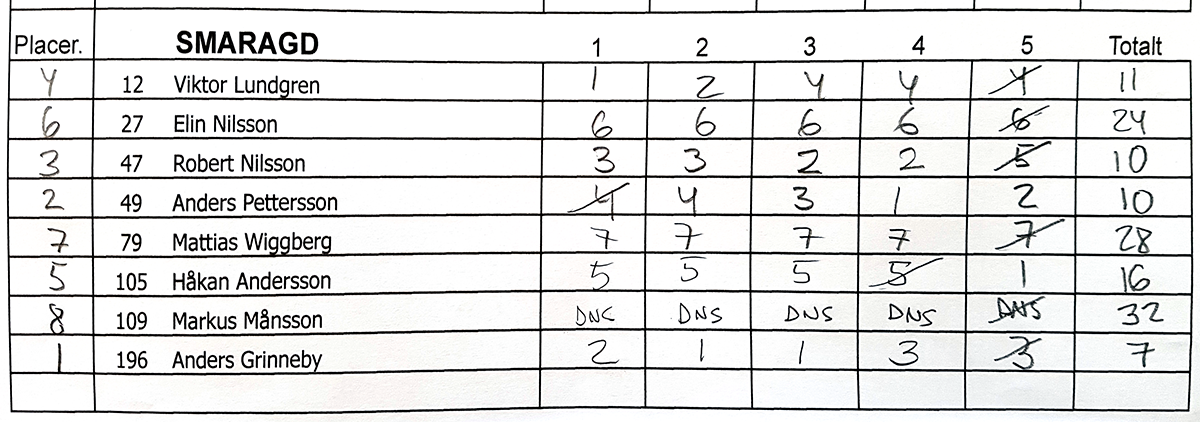 Placer. SMARAGD 1 2 3 4 5 Totalt
4 12 Viktor Lundgren 1 2 4 4 4 11
6 27 Elin Nilsson 6 6 6 6 6 24
3 47 Robert Nilsson 3 3 2 2 5 10
2 49 Anders Pettersson 4 4 3 1 2 10
7 79 Mattias Wiggberg 7 7 7 7 7 28
5 105 Håkan Andersson 5 5 5 5 1 16
8 109 Markus Månsson DNC DNS DNS DNS DNS 32
1 196 Anders Grinneby 2 1 1 3 3 7